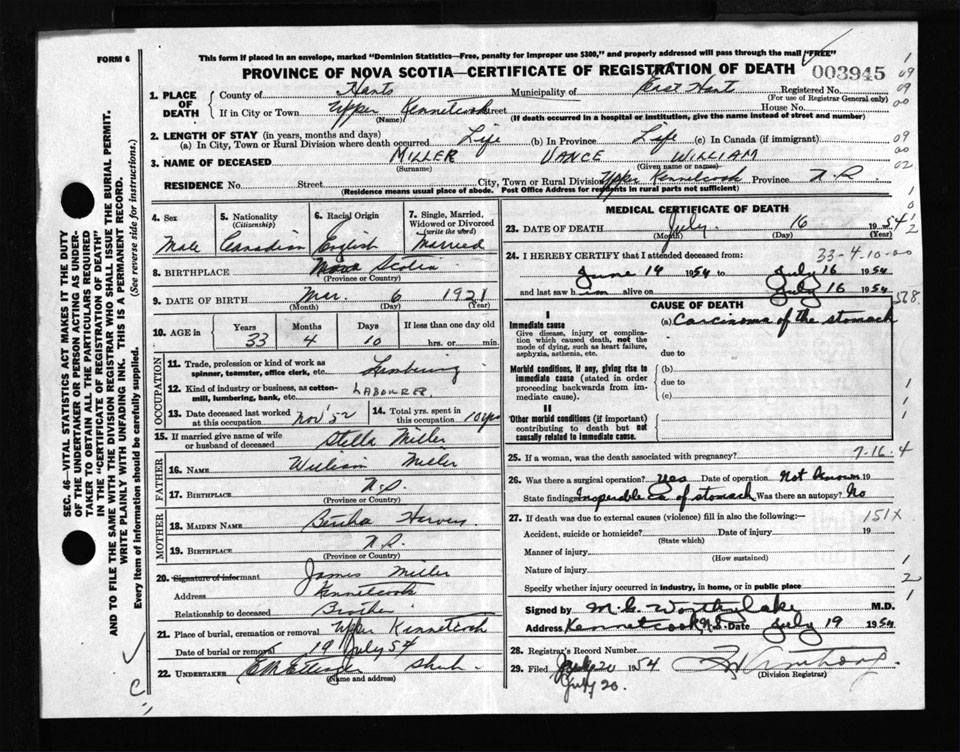 This form if placed in an envelope, marked "Dominion Statistics—Free, penalty for improper use $300," and properly addressed will pass through the mail "FREE"
FORM 6
PROVINCE OF NOVA SCOTIA—CERTIFICATE OF REGISTRATION OF DEATH
003945
1. PLACE OF DEATH
County of Hants Municipality of East Hants Registered No.
(For use of Registrar General only)
If in City or Town Upper Kennetcook Street House No.
(Name) (If death occurred in a hospital or institution, give the name instead of street and number)
2. LENGTH OF STAY (in years, months and days)
(a) In City, Town or Rural Division where death occurred Life (b) In Province Life (c) In Canada (if immigrant)
3. NAME OF DECEASED MILLER VANCE WILLIAM
(Surname) (Given name or names)
RESIDENCE No. Street City, Town or Rural Division Upper Kennetcook Province N.S.
(Residence means usual place of abode. Post Office Address for residents in rural parts not sufficient)
4. Sex
Male
5. Nationality
(Citizenship)
Canadian
6. Racial Origin
English
7. Single, Married, Widowed or Divorced
(write the word)
Married
8. BIRTHPLACE Nova Scotia
(Province or Country)
9. DATE OF BIRTH Mar. 6 1921
(Month) (Day) (Year)
10. AGE in
Years Months Days If less than one day old
33 4 10 hrs. or min.
OCCUPATION
11. Trade, profession or kind of work as spinner, teamster, office clerk, etc. Lumbering
12. Kind of industry or business, as cotton-mill, lumbering, bank, etc. LABOURER
13. Date deceased last worked at this occupation Nov '52
14. Total yrs. spent in this occupation 10 yrs
15. If married give name of wife or husband of deceased Stella Miller
FATHER
16. NAME William Miller
17. BIRTHPLACE N.S.
(Province or Country)
MOTHER
18. MAIDEN NAME Bertha
19. BIRTHPLACE N.S.
(Province or Country)
20. Signature of informant James Miller
Address Kennetcook
Relationship to deceased Brother
21. Place of burial, cremation or removal Upper Kennetcook
Date of burial or removal 19 July 54
22. UNDERTAKER
(Name and address)
MEDICAL CERTIFICATE OF DEATH
23. DATE OF DEATH July 16 1954
(Month) (Day) (Year)
24. I HEREBY CERTIFY that I attended deceased from: 33-4-10-00
June 14 1954 to July 16 1954
and last saw him alive on July 16 1954
CAUSE OF DEATH
I
Immediate cause
Give disease, injury or complication which caused death, not the mode of dying, such as heart failure, asphyxia, asthenia, etc.
(a) Carcinoma of the stomach
due to
Morbid conditions, if any, giving rise to immediate cause (stated in order proceeding backwards from immediate cause).
(b)
due to
(c)
II
Other morbid conditions (if important) contributing to death but not causally related to immediate cause.
25. If a woman, was the death associated with pregnancy? 7-16-4
26. Was there a surgical operation? Yes Date of operation Not known 19
State finding Inoperable Ca of stomach Was there an autopsy? No
27. If death was due to external causes (violence) fill in also the following:— 151X
Accident, suicide or homicide? Date of injury 19
(State which)
Manner of injury
(How sustained)
Nature of injury
Specify whether injury occurred in industry, in home, or in public place
Signed by M. G. Worthylake M.D.
Address Kennetcook, N.S. Date July 19 1954
28. Registrar's Record Number
29. Filed July 20 1954
July 20.
(Division Registrar)
SEC. 46—VITAL STATISTICS ACT MAKES IT THE DUTY OF THE UNDERTAKER OR PERSON ACTING AS UNDERTAKER TO OBTAIN ALL THE PARTICULARS REQUIRED IN THE "CERTIFICATE OF REGISTRATION OF DEATH" AND TO FILE THE SAME WITH THE DIVISION REGISTRAR WHO SHALL ISSUE THE BURIAL PERMIT.
WRITE PLAINLY WITH UNFADING INK. THIS IS A PERMANENT RECORD.
Every item of information should be carefully supplied. (See reverse side for instructions.)